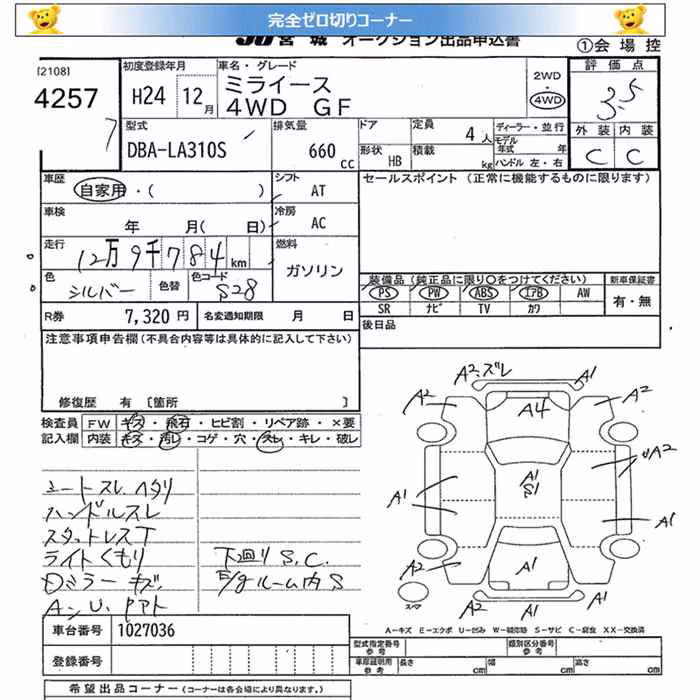 完全ゼロ切りコーナー
JU宮城 オークション出品申込書
①会場控
[2108]
4257
7
初度登録年月
H24 12月
車名・グレード
ミライース
4WD GF
2WD
・
4WD
評価点
3.5
外装 内装
C C
型式
DBA-LA310S
排気量
660 cc
ドア
形状 HB
定員 4人
積載 kg
ディーラー・並行
モデル年式 年
ハンドル 左・右
車歴
自家用・( )
シフト AT
セールスポイント (正常に機能するものに限ります)
車検
年 月( 日)
冷房 AC
走行
12万9千784km
燃料
ガソリン
色
シルバー
色替
色コード
S28
装備品 (純正品に限り○をつけてください)
PS PW ABS エアB AW
SR ナビ TV カワ
新車保証書
有・無
R券 7,320円
名変通知期限 月 日
後日品
注意事項申告欄(不具合内容等は具体的に記入して下さい)
修復歴 有〔箇所 〕
検査員記入欄
FW キズ・飛石・ヒビ割・リペア跡・×要
内装 キズ・汚レ・コゲ・穴・スレ・キレ・破レ
シートスレ ヘタリ
ハンドルスレ
スタットレスT
ライトくもり
Dミラーキズ
A.U.PPト
下廻りS.C.
E/gルーム内S
A2.ズレ
A1
A2
A4
A2
A1
S1
A1
UA2
A1
A2
A1
A2
A2
A1
スペア
A－キズ E－エクボ U－凹み W－補修跡 S－サビ C－腐食 XX－交換済
車台番号 1027036
登録番号
型式指定番号 参考
類別区分番号 参考
車庫証明用 参考
長さ cm 幅 cm 高さ cm
希望出品コーナー (コーナーは各会場により異なります。)